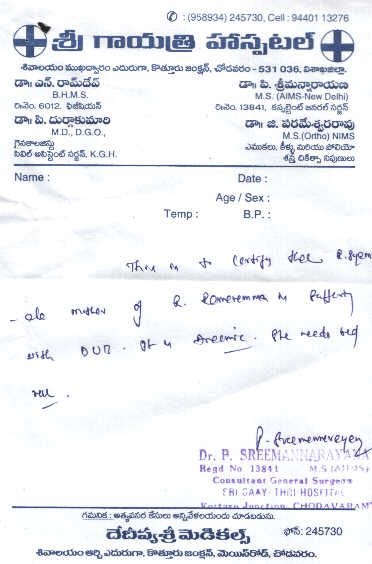 ✆ : (958934) 245730, Cell : 94401 13276
శ్రీ గాయత్రి హాస్పటల్
శివాలయం ముఖద్వారం ఎదురుగా, కొత్తూరు జంక్షన్, చోడవరం - 531 036, విశాఖజిల్లా.
డా॥ ఎన్. రామ్‌దేవ్
B.H.M.S.
రి.నెం. 6012. ఫిజీషియన్
డా॥ పి. దుర్గాకుమారి
M.D., D.G.O.,
గైనకాలజిస్టు
సివిల్ అసిస్టెంట్ సర్జన్, K.G.H.
డా॥ పి. శ్రీమన్నారాయణ
M.S. (AIMS-New Delhi)
రి.నెం. 13841, కన్సల్టెంట్ జనరల్ సర్జన్
డా॥ జి. పరమేశ్వరరావు
M.S.(Ortho) NIMS
ఎముకలు, కీళ్ళు మరియు పోలియో
శస్త్ర చికిత్సా నిపుణులు
Name :
Date :
Age / Sex :
Temp :
B.P. :
This is to certify that
mother of
with DUB. She needs bed
rest.
Dr. P. SREEMANNARAYANA
Regd No 13841 M.S (AIIMS)
Consultant General Surgeon
SRI GAYATHRI HOSPITAL
Kotturu Junction, CHODAVARAM
గమనిక : అత్యవసర కేసులు అన్నివేళలయందు చూడబడును.
దేవీవ్యశ్రీ మెడికల్స్
ఫోన్: 245730
శివాలయం ఆర్చి ఎదురుగా, కొత్తూరు జంక్షన్, మెయిన్‌రోడ్, చోడవరం.